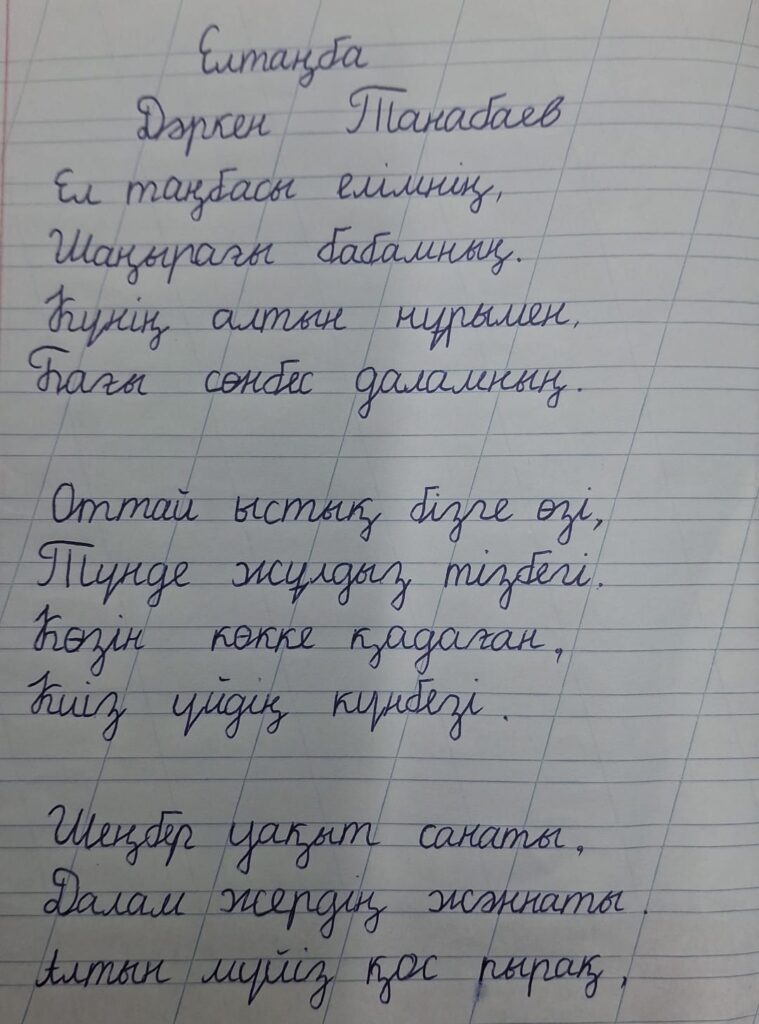 Елтаңба
Дәркен Танабаев
Ел таңбасы елімнің,
Шаңырағы бабамның.
Күнің алтын нұрымен,
Бағы сөнбес даламның.
Оттай ыстық бізге өзі,
Түнде жұлдыз тізбегі.
Көзін көкке қадаған,
Киіз үйдің күнбезі.
Шеңбер уақыт санаты,
Далам жердің жәннаты.
Алтын мүйіз қос пырақ,